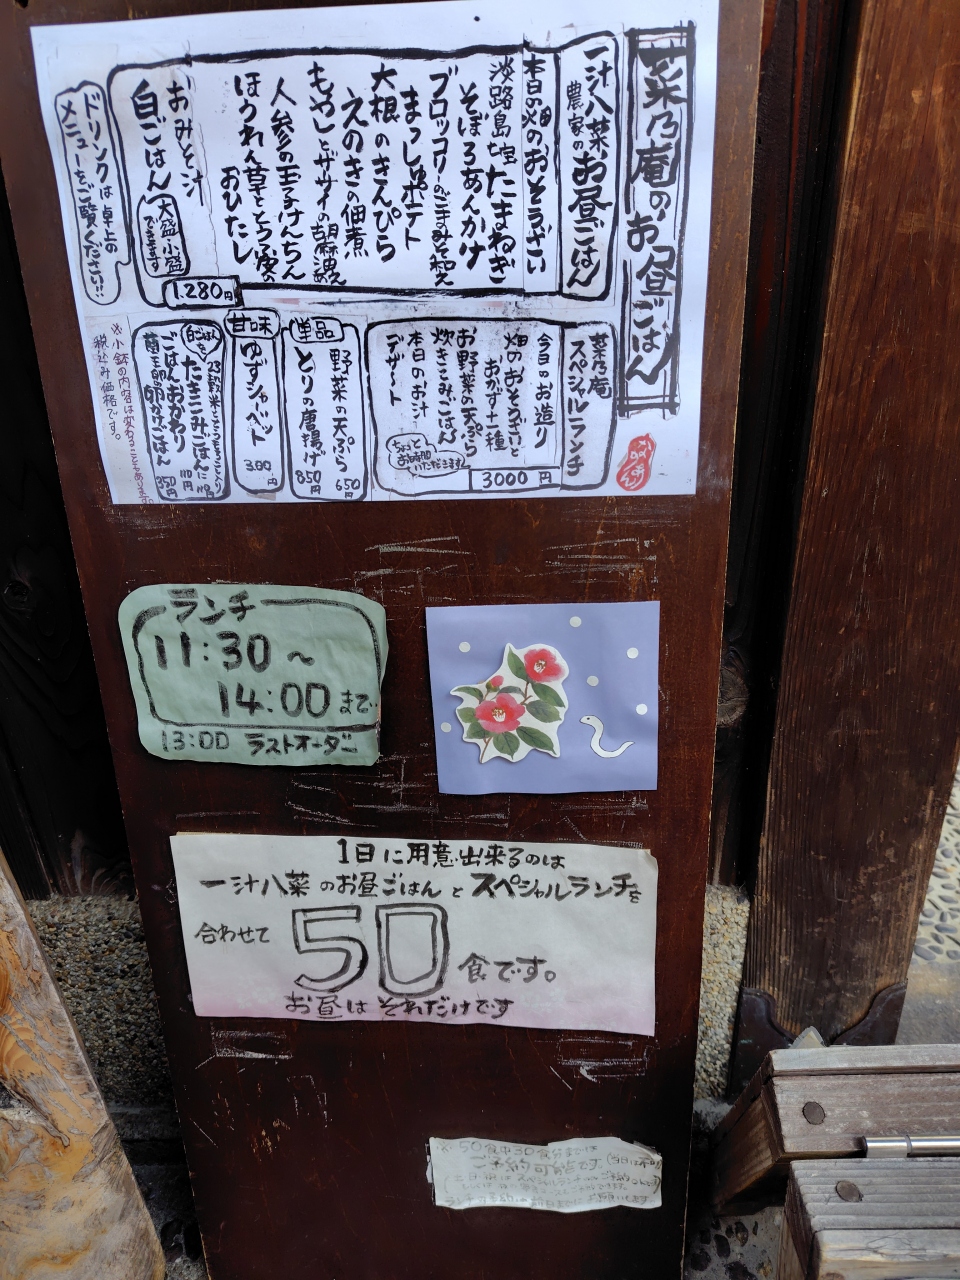 菜乃庵のお昼ごはん
一汁八菜お昼ごはん
農家の
本日の畑のおそうざい
淡路島産たまねぎ
そぼろあんかけ
ブロッコリーのごまみそ和え
まっしゅポテト
大根のきんぴら
えのきの佃煮
もやしとザーサイの胡麻
人参の玉子けんちん
ほうれん草と
おひたし
おみそ汁
白ごはん
大盛小盛
できます
1.280円
ドリンクは卓上の
メニューをご覧ください!!
菜乃庵
スペシャルランチ
今日のお造り
畑のおそうざいと
おかず十一種
お野菜の天ぷら
炊きこみごはん
本日のお汁
デザート
ちょっと
お時間
いただきます
3000円
単品
野菜の天ぷら
650円
とりの唐揚げ
850円
甘味
ゆずシャーベット
300円
白ごはん
たきこみごはんに
110円
ごはんおかわり
110円
卵かけごはん
350円
※小鉢の内容は変わることもあります。
税込み価格です。
ランチ
11:30〜
14:00まで
13:00 ラストオーダー
1日に用意出来るのは
一汁八菜のお昼ごはんとスペシャルランチを
合わせて
50食です。
お昼はそれだけです
ご予約可能です